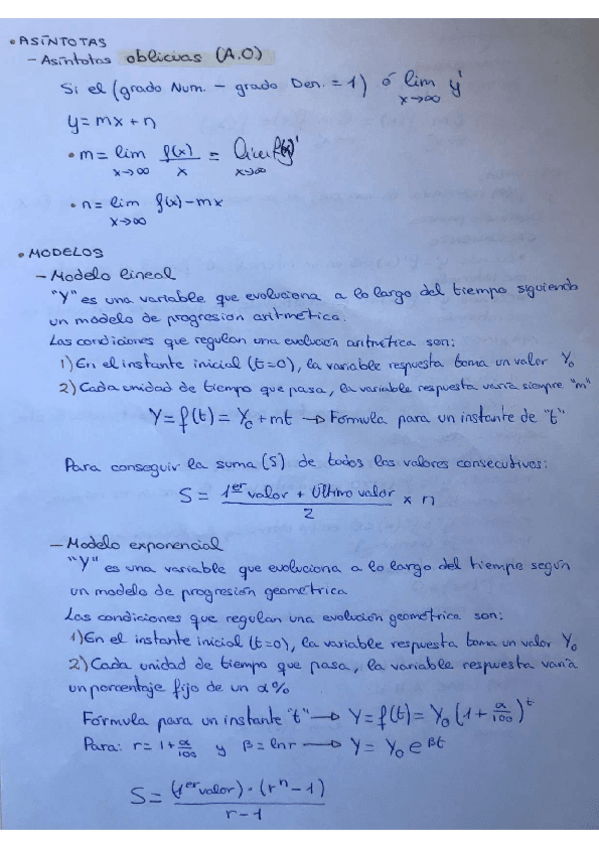 • ASÍNTOTAS
- Asíntotas oblicuas (A.O)
Si el (grado Num. - grado Den. = 1) ó lim y'
x→∞
y = mx + n
• m = lim f(x)/x = lim f(x)'
x→∞ x→∞
• n = lim f(x) - mx
x→∞
• MODELOS
- Modelo lineal
"Y" es una variable que evoluciona a lo largo del tiempo siguiendo
un modelo de progresión aritmética.
Las condiciones que regulan una evolución aritmética son:
1) En el instante inicial (t=0), la variable respuesta toma un valor Y₀
2) Cada unidad de tiempo que pasa, la variable respuesta varía siempre "m"
Y = f(t) = Y₀ + mt → Fórmula para un instante de "t"
Para conseguir la suma (S) de todos los valores consecutivos:
S = (1er valor + Último valor)/2 x n
- Modelo exponencial
"Y" es una variable que evoluciona a lo largo del tiempo según
un modelo de progresión geométrica
Las condiciones que regulan una evolución geométrica son:
1) En el instante inicial (t=0), la variable respuesta toma un valor Y₀
2) Cada unidad de tiempo que pasa, la variable respuesta varía
un porcentaje fijo de un α%
Fórmula para un instante "t" → Y = f(t) = Y₀ (1 + α/100)^t
Para: r = 1 + α/100 y β = ln r → Y = Y₀ e^βt
S = (1er valor) · (rⁿ - 1)/r - 1